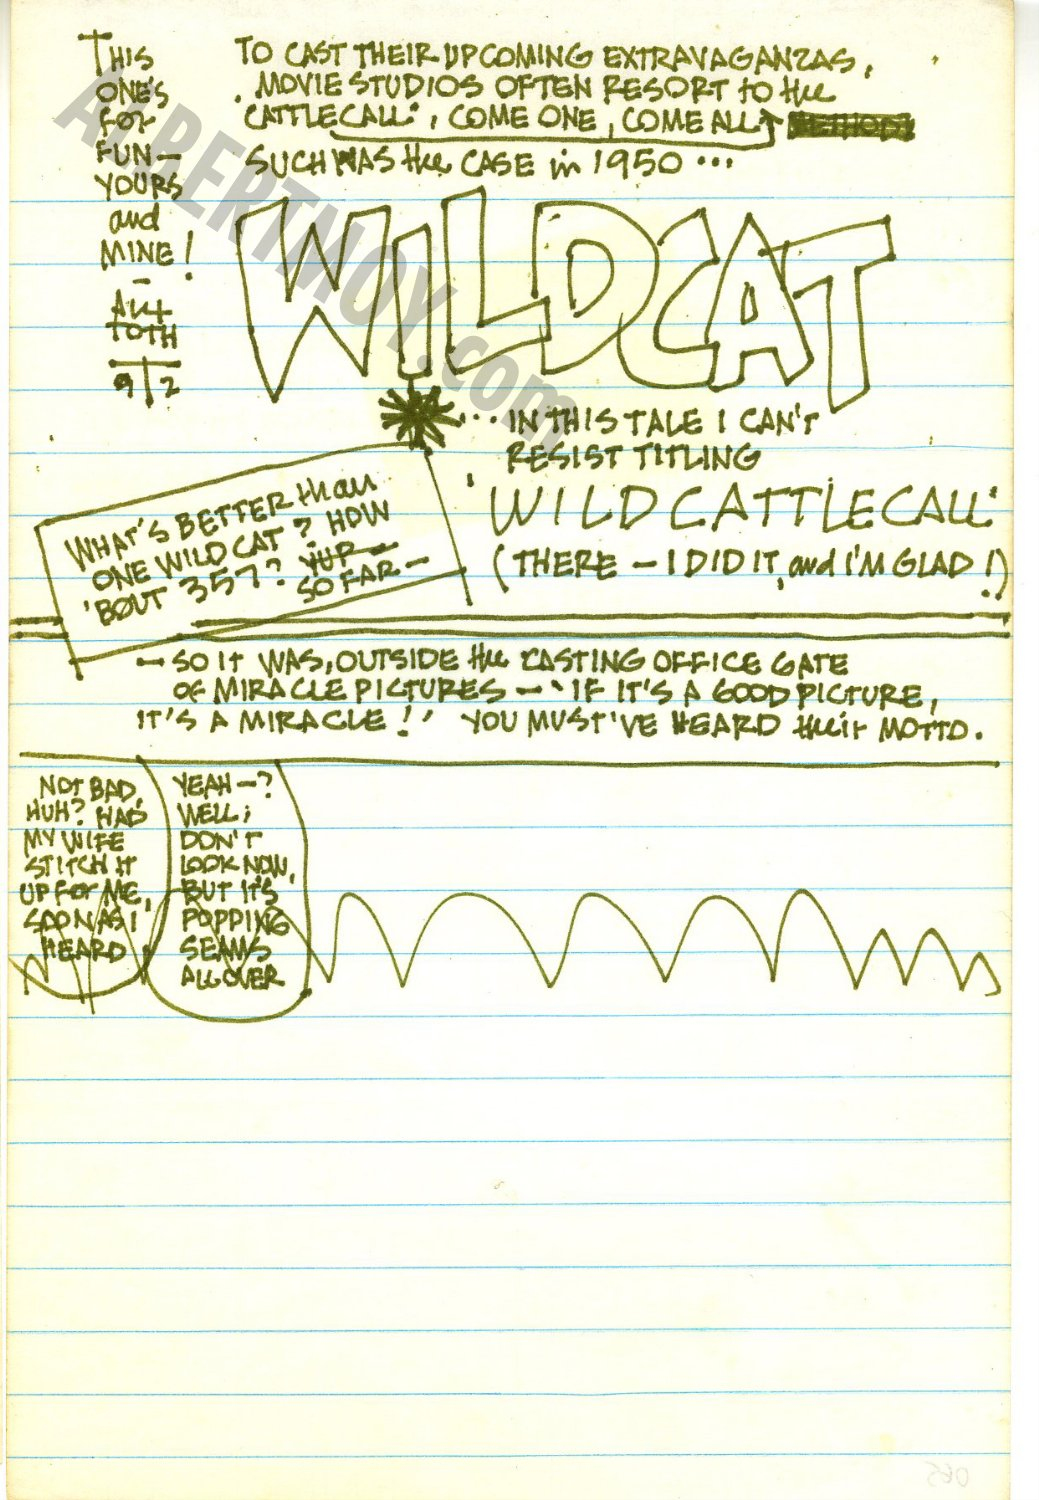 THIS
ONE'S
for
FUN—
YOURS
and
MINE!
—
ALEX
TOTH
9 2
TO CAST THEIR UPCOMING EXTRAVAGANZAS,
MOVIE STUDIOS OFTEN RESORT to the
'CATTLECALL', COME ONE, COME ALL
SUCH WAS the CASE in 1950 ...
WILDCAT
... IN THIS TALE I CAN'T
RESIST TITLING
'WILDCATTLECALL'
(THERE — I DID IT, and I'M GLAD!)
WHAT'S BETTER than
ONE WILDCAT? HOW
'BOUT 357? YUP—
SO FAR—
— SO IT WAS, OUTSIDE the CASTING OFFICE GATE
of MIRACLE PICTURES — 'IF IT'S A GOOD PICTURE,
IT'S A MIRACLE!' YOU MUST'VE HEARD their MOTTO.
NOT BAD,
HUH? HAD
MY WIFE
STITCH IT
UP for ME,
SOON AS I
HEARD
YEAH—?
WELL;
DON'T
LOOK NOW,
BUT IT'S
POPPING
SEAMS
ALL OVER
ALBERTMOY.com
065